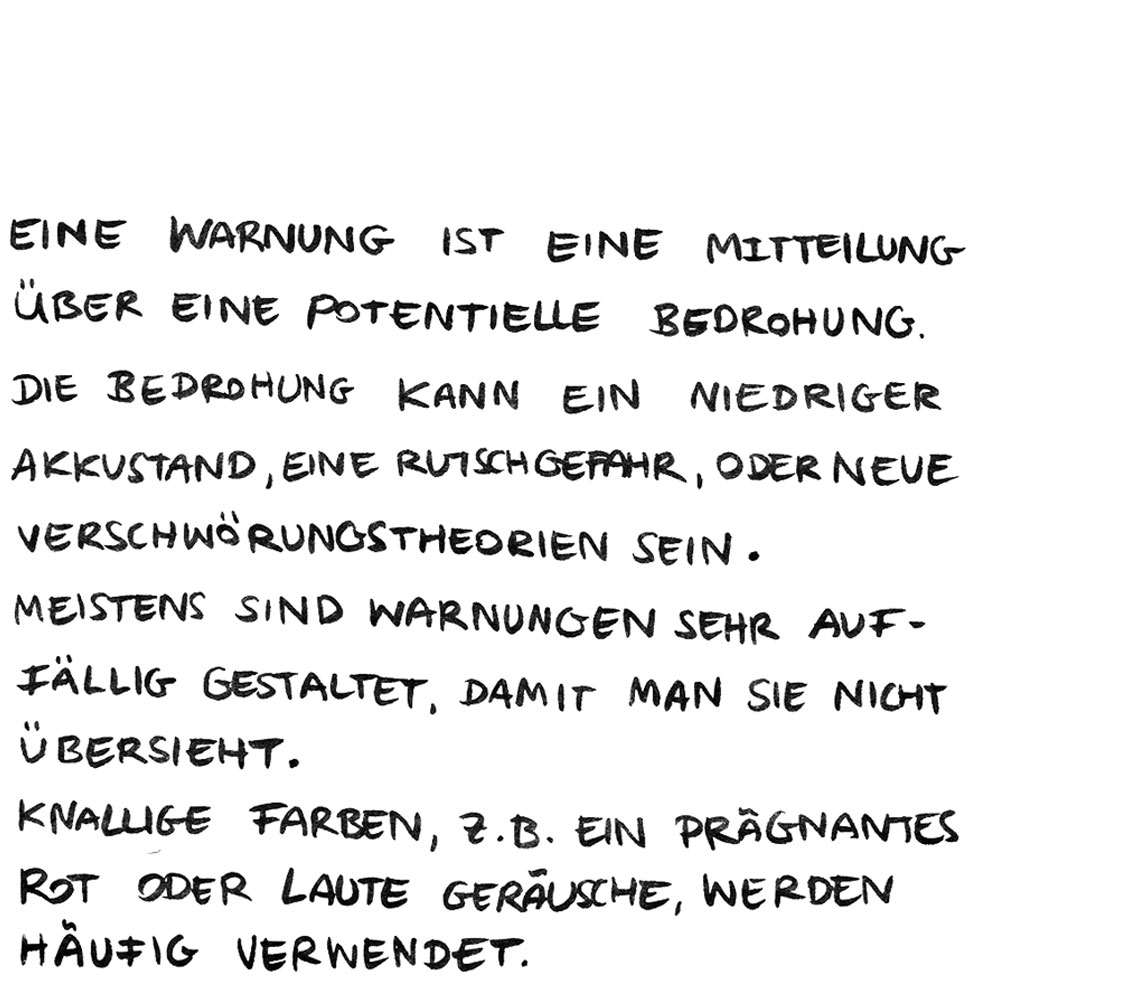 EINE WARNUNG IST EINE MITTEILUNG
ÜBER EINE POTENTIELLE BEDROHUNG.
DIE BEDROHUNG KANN EIN NIEDRIGER
AKKUSTAND, EINE RUTSCHGEFAHR, ODER NEUE
VERSCHWÖRUNGSTHEORIEN SEIN.
MEISTENS SIND WARNUNGEN SEHR AUF-
FÄLLIG GESTALTET, DAMIT MAN SIE NICHT
ÜBERSIEHT.
KNALLIGE FARBEN, Z.B. EIN PRÄGNANTES
ROT ODER LAUTE GERÄUSCHE, WERDEN
HÄUFIG VERWENDET.